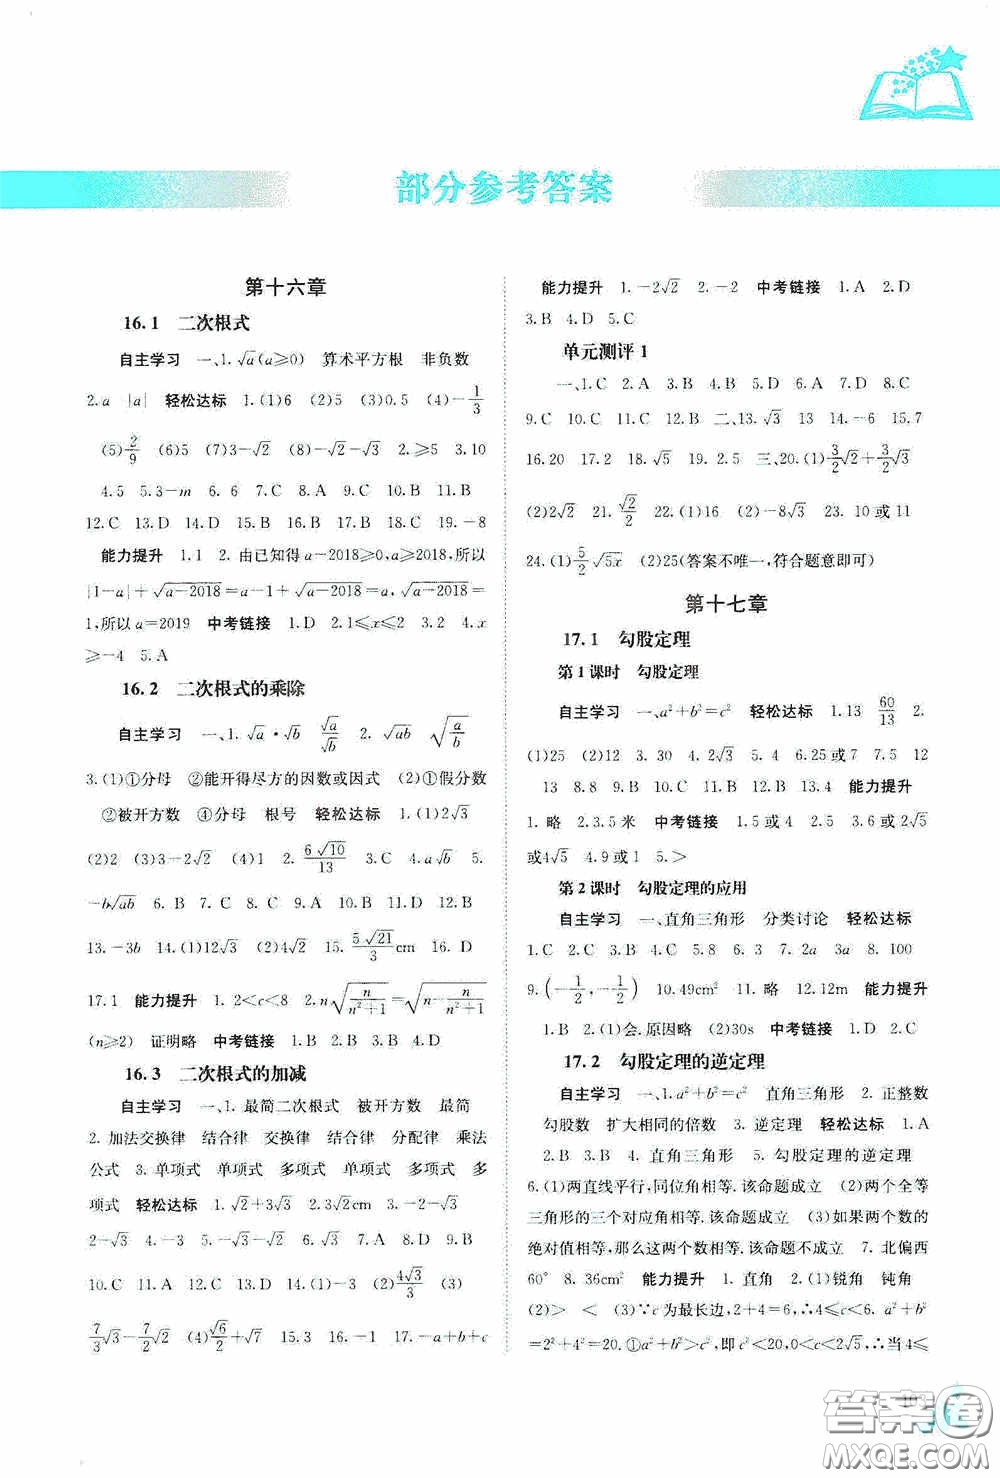 部分参考答案
第十六章
16.1 二次根式
自主学习 一、1.√a(a⩾0) 算术平方根 非负数
2.a |a| 轻松达标 1.(1)6 (2)5 (3)0.5 (4)-1/3
(5)2/9 (6)5 (7)3-√2 (8)-√2 2.⩾5 3.10
4.5 5.3-m 6.6 7.C 8.A 9.C 10.B 11.B
12.C 13.D 14.D 15.B 16.B 17.B 18.C 19.-8
能力提升 1.1 2.由已知得a-2018⩾0,a⩾2018,所以
|1-a|+√(a-2018)=a-1+√(a-2018)=a,√(a-2018)=
1,所以a=2019 中考链接 1.D 2.1⩽x⩽2 3.2 4.x
⩾-4 5.A
16.2 二次根式的乘除
自主学习 一、1.√a·√b √a/√b 2.√ab √(a/b)
3.(1)①分母 ②能开得尽方的因数或因式 (2)①假分数
②被开方数 ④分母 根号 轻松达标 1.(1)2√3
(2)2 (3)3-2√2 (4)1 2.6√10/13 3.C 4.a√b 5.
-b√ab 6.B 7.C 8.B 9.C 10.C 11.A 12.B
13.-3b 14.(1)12√3 (2)4√2 15.5√21/3 cm 16.D
17.1 能力提升 1.2<c<8 2.n√(n/(n²+1))=√(n-n/(n²+1))
(n⩾2) 证明略 中考链接 1.B 2.A 3.B 4.D
16.3 二次根式的加减
自主学习 一、1.最简二次根式 被开方数 最简
2.加法交换律 结合律 交换律 结合律 分配律 乘法
公式 3.单项式 单项式 多项式 单项式 多项式 多
项式 轻松达标 1.√2+3√3 2.3√2cm 3.-2-√3
2-√3 4.-√2 5.2 6.D 7.B 8.D 9.B
10.C 11.A 12.C 13.D 14.(1)-6 (2)4√3/3 (3)
7/3√3-7/2√2 (4)√6/2+√7 15.3 16.-1 17.-a+b+c
能力提升 1.-2√2 2.-2 中考链接 1.A 2.D
3.B 4.D 5.C
单元测评1
一、1.C 2.A 3.B 4.B 5.C 6.A 7.D 8.C
9.C 10.C 11.C 12.B 二、13.√3 13 14.-6 15.7
16.20 17.2 18.√5 19.2.5 三、20.(1)3/2√2+3/2√3
(2)2√2 21.√2/2 22.(1)16 (2)-8√3 23.10或11
24.(1)5/2√5x (2)25(答案不唯一,符合题意即可)
第十七章
17.1 勾股定理
第1课时 勾股定理
自主学习 一、a²+b²=c² 轻松达标 1.13 60/13 2.
(1)25 (2)12 3.30 4.2√3 5.4 6.25或7 7.5 12
13 8.8 9.B 10.C 11.B 12.B 13.4 能力提升
1.略 2.3.5米 中考链接 1.5或4 2.5 3.6或2√5
或4√5 4.9或1 5.>
第2课时 勾股定理的应用
自主学习 一、直角三角形 分类讨论 轻松达标
1.C 2.C 3.B 4.C 5.8 6.3 7.2a 3a 8.100
9.(-1/2,-1/2) 10.49cm² 11.略 12.12m 能力提升
1.B 2.(1)会.原因略 (2)30s 中考链接 1.D 2.C
17.2 勾股定理的逆定理
自主学习 一、1.a²+b²=c² 直角三角形 2.正整数
勾股数 扩大相同的倍数 3.逆定理 轻松达标 1.A
2.B 3.B 4.直角三角形 5.勾股定理的逆定理
6.(1)两直线平行,同位角相等.该命题成立 (2)两个全等
三角形的三个对应角相等.该命题成立 (3)如果两个数的
绝对值相等,那么这两个数相等.该命题不成立 7.北偏西
60° 8.36cm² 能力提升 1.直角 2.(1)锐角 钝角
(2)> < (3)∵c为最长边,2+4=6,∴4⩽c<6,a²+b²
=2²+4²=20.①a²+b²>c²,即c²<20,0<c<2√5,∴当4⩽
103
答案卷
MXQE.COM